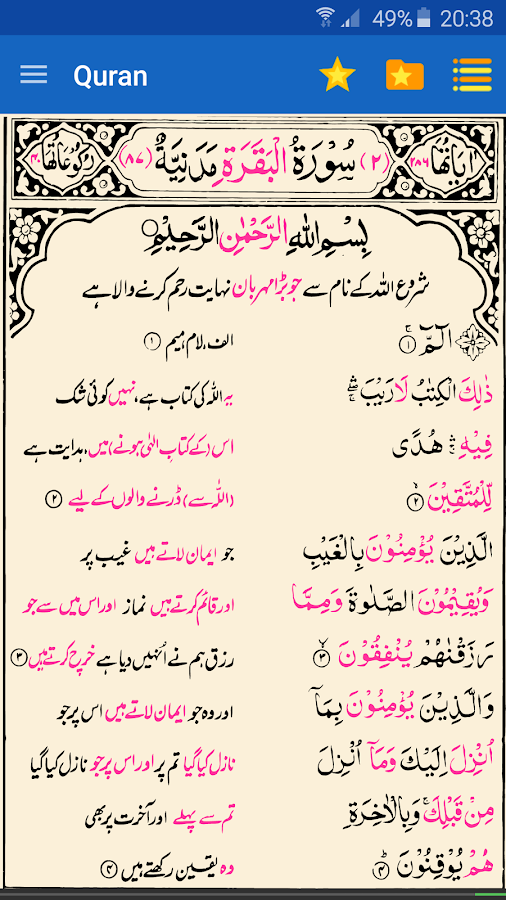 49% 20:38
Quran
اٰيَاتُهَا ٢٨٦ (٢) سُوْرَةُ الْبَقَرَةِ مَدَنِيَّةٌ (٨٧) رُكُوْعَاتُهَا ٤٠
بِسْمِ اللهِ الرَّحْمٰنِ الرَّحِيْمِ
شروع اللہ کے نام سے جو بڑا مہربان نہایت رحم کرنے والا ہے
الٓمّٓ ۚ ١
الف، لام، میم ۱
ذٰلِكَ الْكِتٰبُ لَا رَيْبَ ۛۚ
یہ اللہ کی کتاب ہے، نہیں کوئی شک
فِيْهِ ۛۚ هُدًى
اس (کے کتاب الٰہی ہونے) میں، ہدایت ہے
لِّلْمُتَّقِيْنَ ۙ ٢
(اللہ سے) ڈرنے والوں کے لیے ۲
الَّذِيْنَ يُؤْمِنُوْنَ بِالْغَيْبِ
جو ایمان لاتے ہیں غیب پر
وَيُقِيْمُوْنَ الصَّلٰوةَ وَمِمَّا
اور قائم کرتے ہیں نماز اور اس میں سے جو
رَزَقْنٰهُمْ يُنْفِقُوْنَ ۙ ٣
رزق ہم نے اُنہیں دیا ہے خرچ کرتے ہیں ۳
وَالَّذِيْنَ يُؤْمِنُوْنَ بِمَآ
اور وہ جو ایمان لاتے ہیں اس پر جو
اُنْزِلَ اِلَيْكَ وَمَآ اُنْزِلَ
نازل کیا گیا تم پر اور اس پر جو نازل کیا گیا
مِنْ قَبْلِكَ ۚ وَبِالْاٰخِرَةِ
تم سے پہلے اور آخرت پر بھی
هُمْ يُوْقِنُوْنَ ؕ ٤
وہ یقین رکھتے ہیں ۴